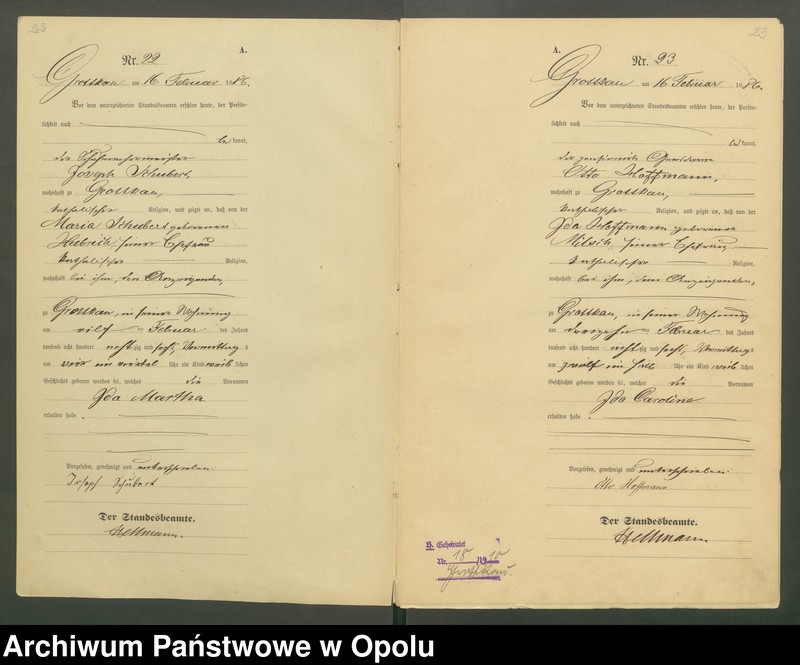 22
A.
Nr. 22
Grottkau am 16. Februar 1886.
Vor dem unterzeichneten Standesbeamten erschien heute, der Persön-
lichkeit nach
be kannt,
der Schuhmachermeister
Joseph Schubert,
wohnhaft zu Grottkau,
katholischer Religion, und zeigte an, daß von der
Maria Schubert geborenen
seiner Ehefrau
katholischer Religion,
wohnhaft bei ihm, dem Anzeigenden,
zu Grottkau, in seiner Wohnung
am elf ten Februar des Jahres
tausend acht hundert achtzig und sechs, Vormittags
um vier ein viertel Uhr ein Kind weib lichen
Geschlechts geboren worden sei, welches die Vornamen
Ida Martha
erhalten habe
Vorgelesen, genehmigt und unterschrieben.
Joseph Schubert
Der Standesbeamte.
Hellmann.
23
A.
Nr. 23
Grottkau am 16 Februar 1886.
Vor dem unterzeichneten Standesbeamten erschien heute, der Persön-
lichkeit nach
be kannt,
der pensionirte Gendarm
Otto Hoffmann,
wohnhaft zu Grottkau,
katholischer Religion, und zeigte an, daß von der
Ida Hoffmann geborenen
seiner Ehefrau,
katholischer Religion,
wohnhaft bei ihm, dem Anzeigenden,
zu Grottkau, in seiner Wohnung
am dreizehn ten Februar des Jahres
tausend acht hundert achtzig und sechs, Vormittags
um zwölf ein halb Uhr ein Kind weib lichen
Geschlechts geboren worden sei, welches die Vornamen
Ida Caroline
erhalten habe
Vorgelesen, genehmigt und unterschrieben.
Otto Hoffmann.
Der Standesbeamte.
Hellmann.
Geheiratet
Nr. 18 /1910
Archiwum Państwowe w Opolu